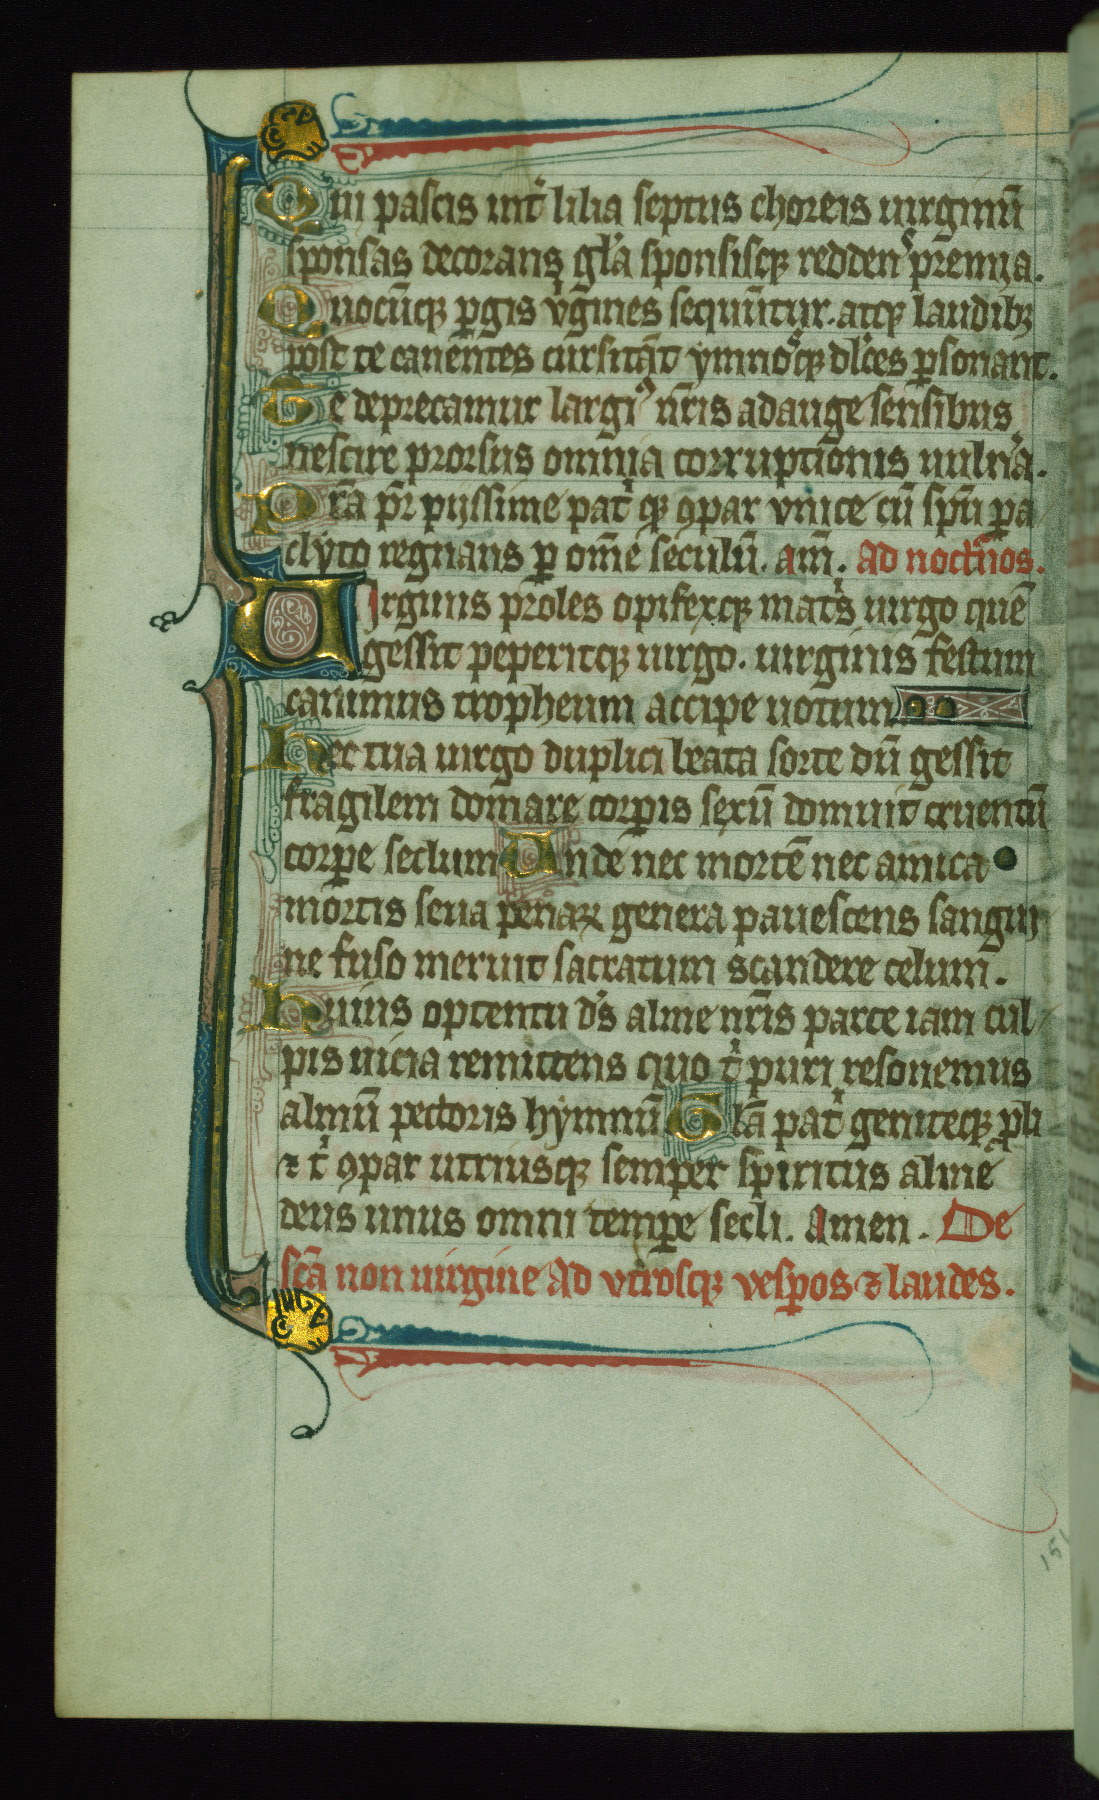 Qui pascis int̄ lilia septus choreis uirginū
sponsas decorans gl̄a sponsisq; redden^s premia.
Quocūq; ꝑgis v̄gines sequūtur. atq; laudib;
post te canentes cursitāt ymnosq; dl̄ces ꝑsonant.
Te deprecamur largiꝰ nr̄is adauge sensibus
nescire prorsus omnia corruptionis uulnᵃa.
Pr̄a pr̄ piissime patͥq; ꝯpar vnice cū spū ꝑa
clyto regnans ꝑ om̄e seculū. am̄. Ad noctn̄os.
Uirginis proles opifexq; matͥs uirgo quē
gessit peperitq; uirgo. uirginis festum
canimus tropheum accipe uotum
Hec tua uirgo duplici beata sorte dū gessit
fragilem domare corꝑis sexū domuit cruentū
corꝑe seclum Unde nec mortē nec amica
mortis seua penaꝝ genera pauescens sangui
ne fuso meruit sacratum scandere celum.
Huius optentu ds̄ alme nr̄is parce iam cul
pis uicia remittens quo tͥ puri resonemus
almū pectoris hymnū Gl̄a patͥ geniteq; ꝓli
⁊ tͥ ꝯpar utriusq; semper spiritus alme
deus unus omni tempe secli. Amen. De
sc̄a non uirgine Ad vtrosq; vesꝑos ⁊ laudes.
151